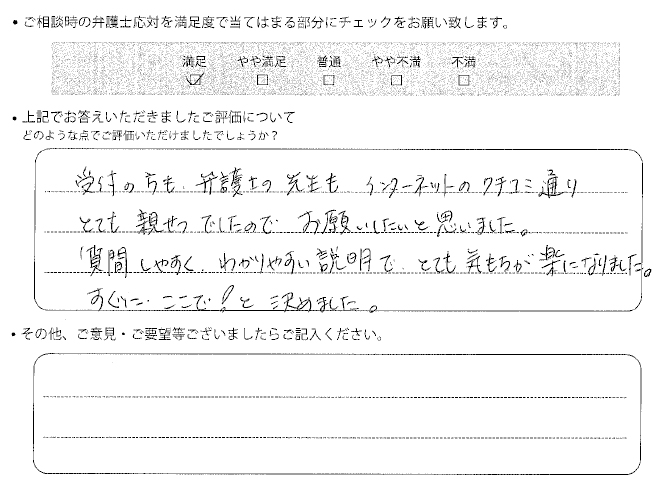 ・ご相談時の弁護士応対を満足度で当てはまる部分にチェックをお願い致します。
満足 やや満足 普通 やや不満 不満
☑ □ □ □ □
・上記でお答えいただきましたご評価について
どのような点でご評価いただけましたでしょうか？
受付の方も、弁護士の先生も、インターネットのクチコミ通り
とても親せつでしたので、お願いしたいと思いました。
質問しやすく、わかりやすい説明で、とても気もちが楽になりました。
すぐに、ここで！と決めました。
・その他、ご意見・ご要望等ございましたらご記入ください。